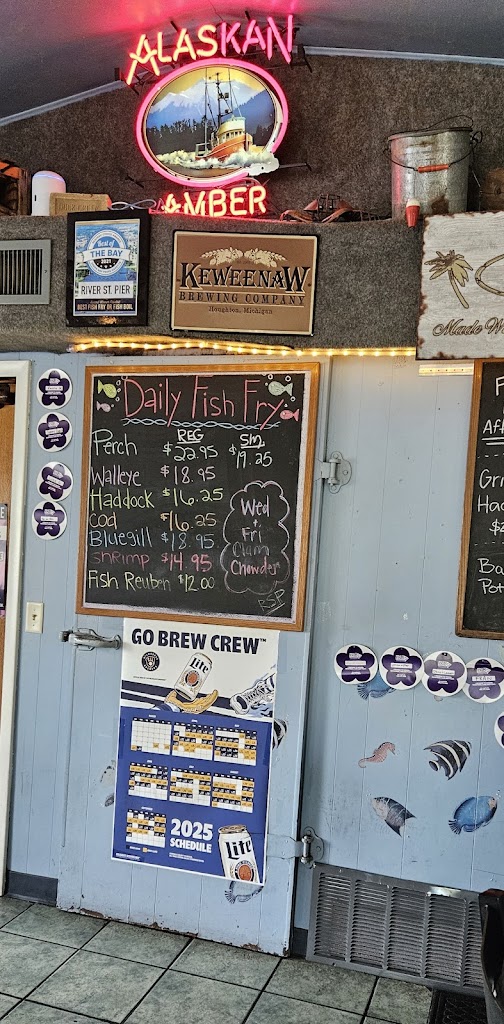 ALASKAN
AMBER
Best of
THE BAY
2021
RIVER ST. PIER
BEST FISH FRY OR FISH BOIL
KEWEENAW
BREWING COMPANY
Houghton, Michigan
Made W
Daily Fish Fry
REG Sm.
Perch $22.95 $19.25
Walleye $18.95
Haddock $16.25
Cod $16.25
Bluegill $18.95
Shrimp $14.95
Fish Reuben $12.00
Wed
+
Fri
Clam
Chowder
RSP
F
Aft
Gri
Had
$
Ba
Pot
GO BREW CREW™
Lite
2025
SCHEDULE
Lite